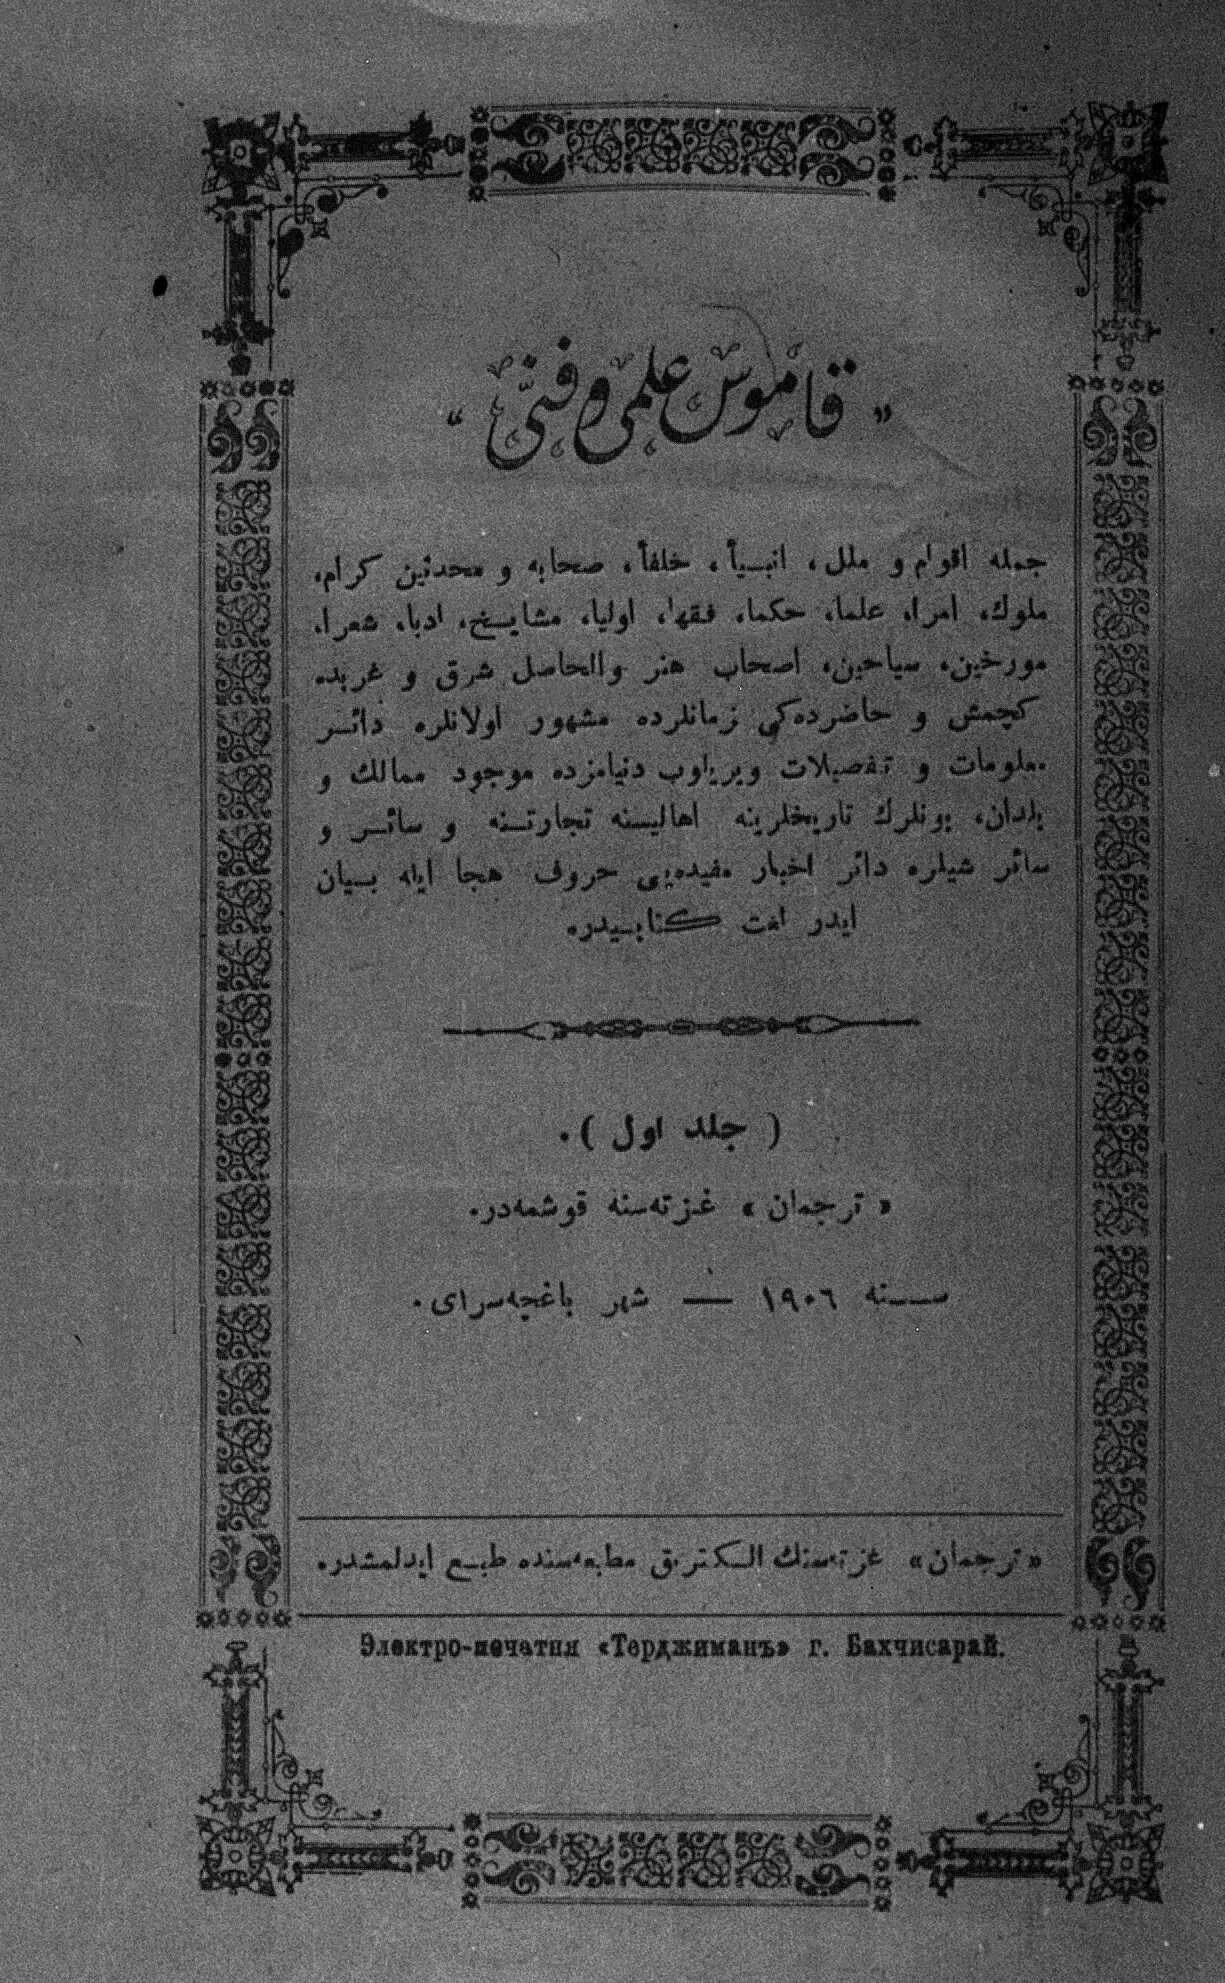 « قاموس علمی و فنّی »
جمله اقوام و ملل، انبـیأ، خلفأ، صحابه و محدثین کرام،
ملوك، امرا، علما، حکما، فقها، اولیا، مشایـخ، ادبا، شعرا،
مورخین، سیاحین، اصحاب هنر والحاصل شرق و غربده
کچمش و حاضرده‌کی زمانلرده مشهور اولانلره دائـر
معلومات و تفصیلات ویریلوب دنیامزده موجود ممالك و
بلدان، بونلرك تاریخلرینه اهالیسنه تجارتـنه و سائـر و
سائر شیلره دائر اخبار مفیده‌یی حروف هجا ایله بـیان
ایدر لغت کتابـیدر.
( جلد اول ).
« ترجمان » غزته‌سنه قوشمه‌در.
سـنه ١٩٠٦ — شهر باغچه‌سرای.
« ترجمان » غزته‌سنك الـکتریق مطبعه‌سنده طبـع ایدلمشدر.
Электро-печатня «Терджиманъ» г. Бахчисарай.